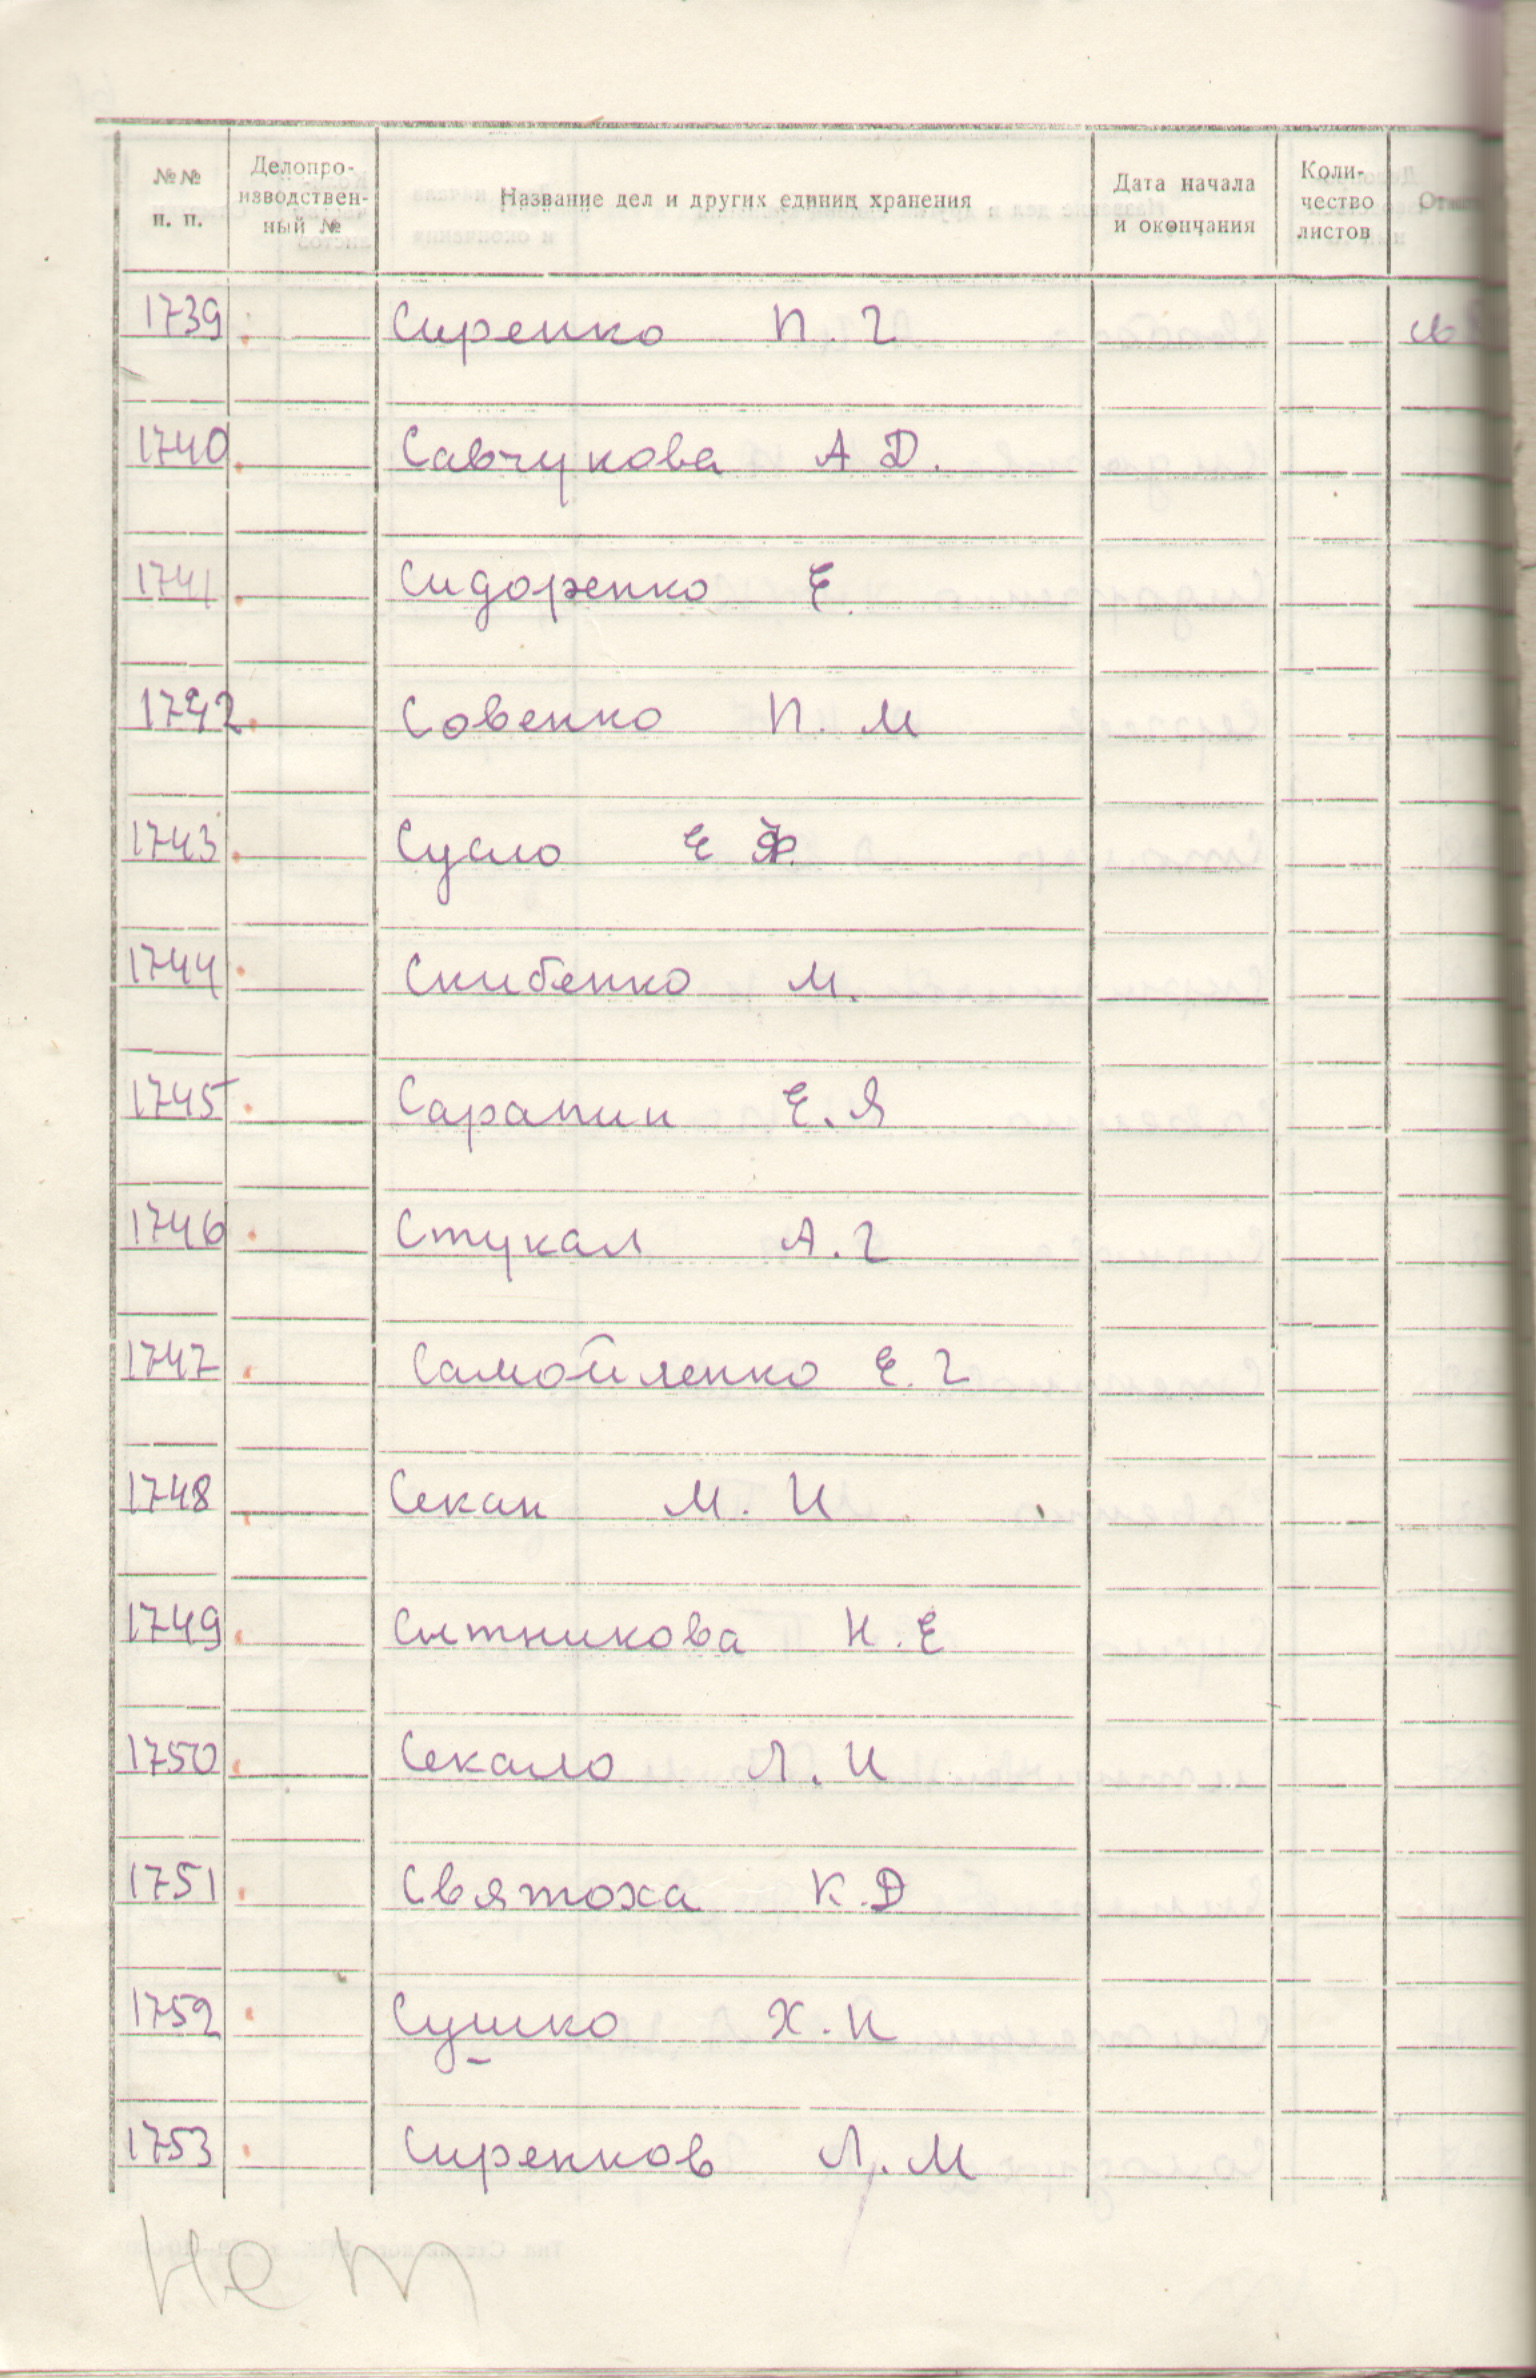 №№ п. п. Делопро-изводствен-ный № Название дел и других единиц хранения Дата начала и окончания Коли-чество листов
1739 Сиренко П. Г
1740 Савчукова А Д.
1741 Сидоренко Е.
1742 Совенко П. М
1743 Сусло Е Ф.
1744 Скибенко М.
1745 Сарапин Е. Я
1746 Стукал А. Г
1747 Самойленко Е. Г
1748 Секан М. И
1749 Сытникова Н. Е
1750 Секало Л. И
1751 Святоха К. Д
1752 Сушко Х. И
1753 Сиренков Л. М
нет